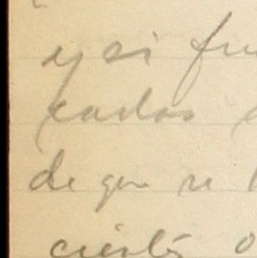 y si fu
cados
de que se
cierto o